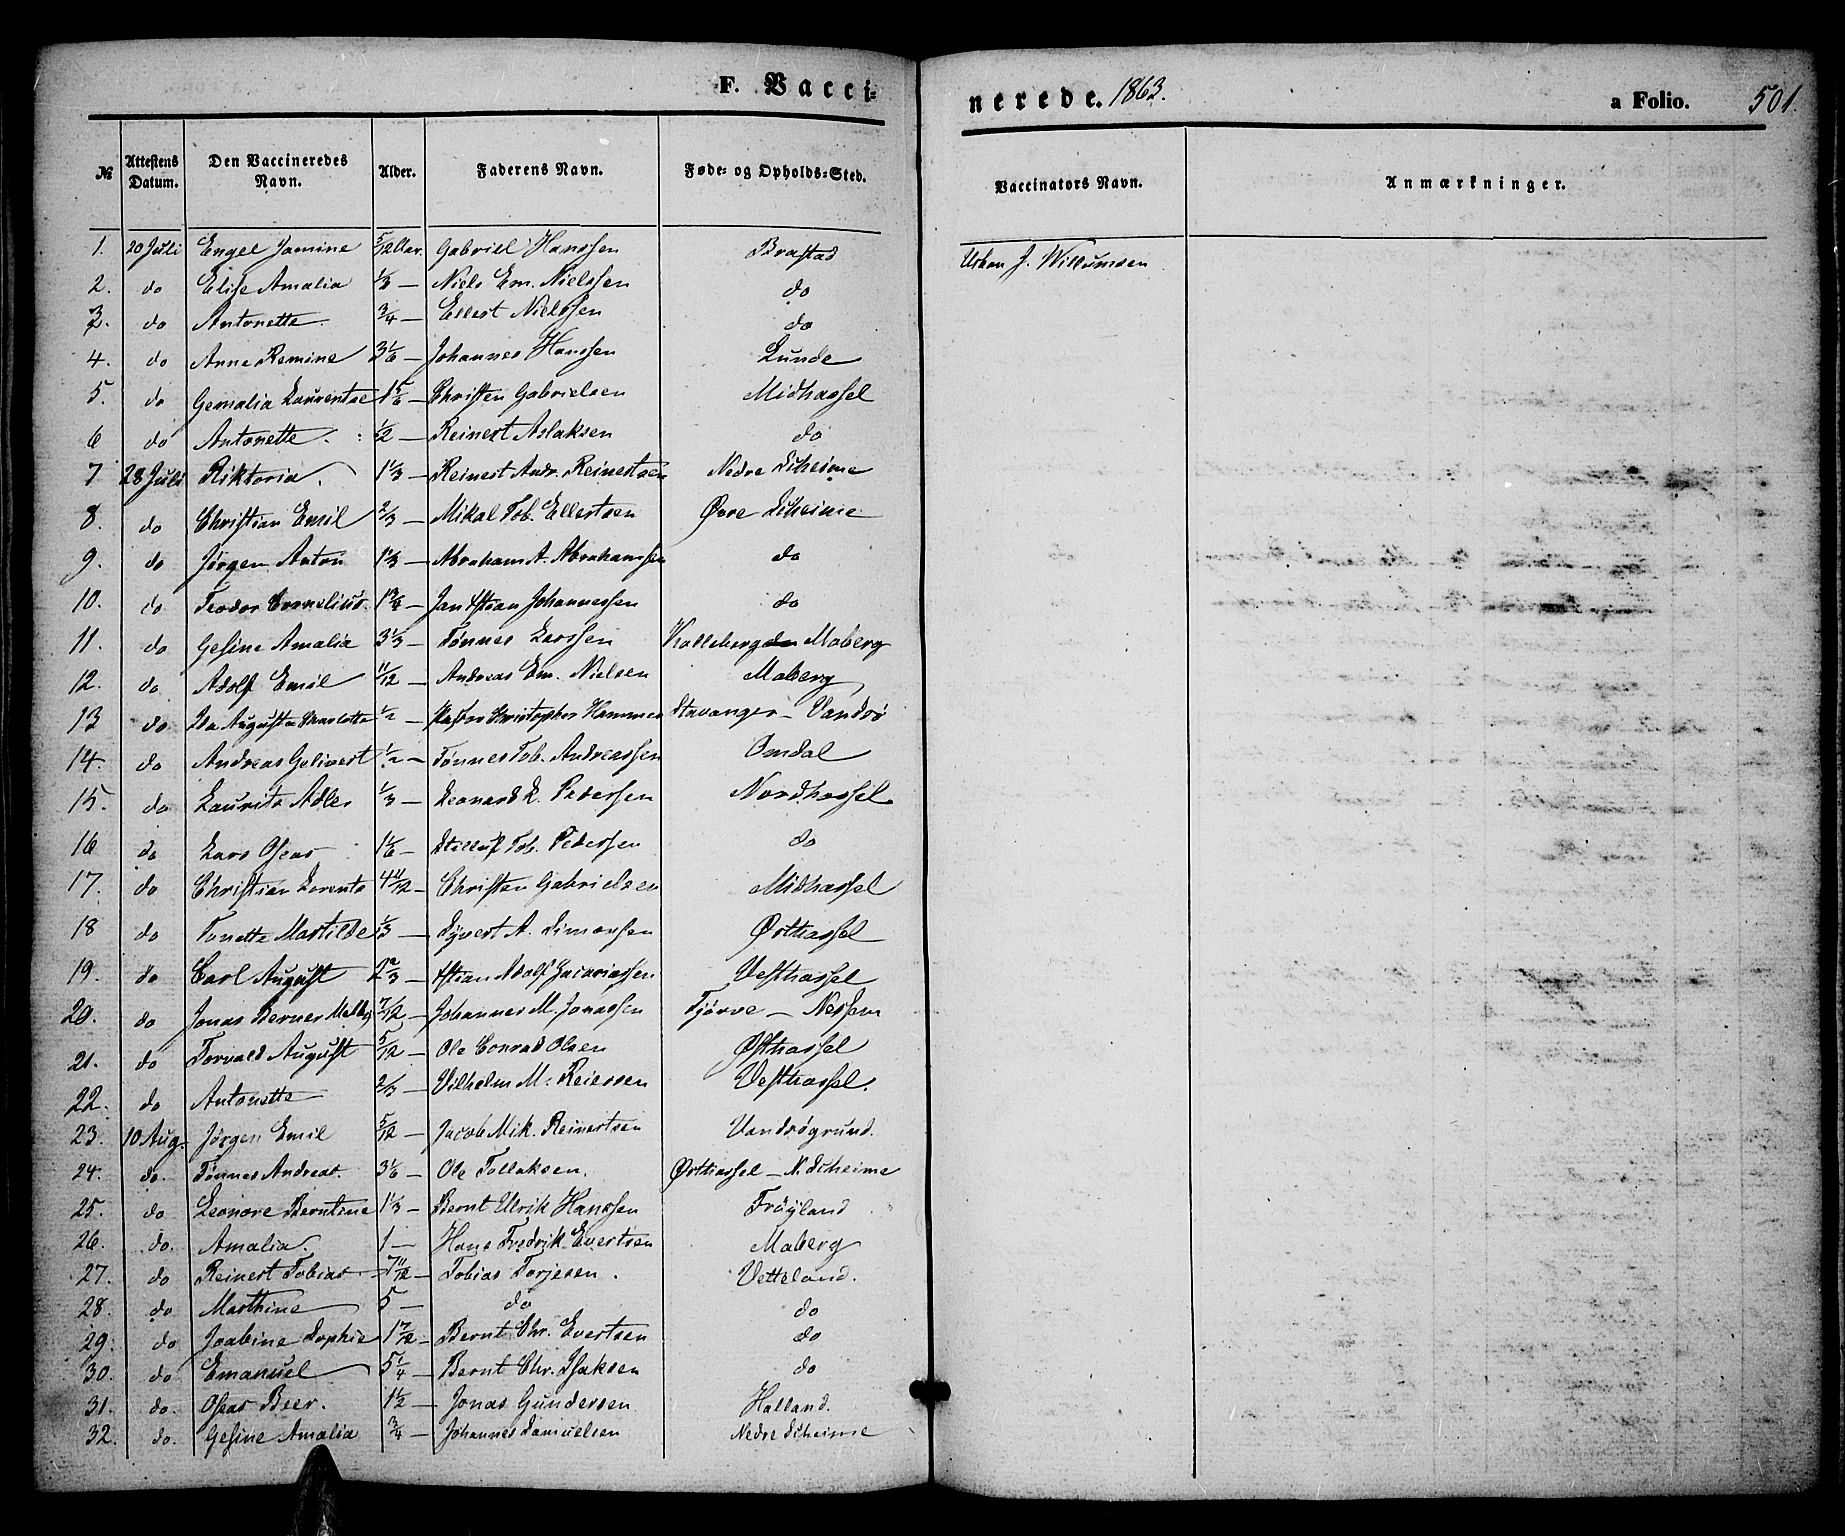 F. Vacci=
nerede. 1863.
a Folio. 501.
№ Attestens Datum. Den Vaccineredes Navn. Alder. Faderens Navn. Føde- og Opholds-Sted. Vaccinators Navn. Anmærkninger.
1. 20 Juli Engel Jamine 5/12 Aar. Gabriel Hanssen Brastad J. Willumsen
2. do Elise Amalia 1/3 — Niels Em. Nielssen do
3. do Antonette 3/4 — Ellert Nielssen do
4. do Anne Remine 3 1/6 — Johannes Hanssen Lunde
5. do Gemalia Laurentse 1 5/6 — Christen Gabrielsen Midhassel
6 do Antonette. 1/2 — Reinert Aslaksen do
7 28 Juli Riktoria. 1 1/3 — Reinert Andr. Reinertsen Nedre Skeime
8. do Christian Emil 2/3 — Mikal Tob. Ellertsen Øvre Skeime
9. do Jørgen Anton 1 1/3 — Abraham A. Abrahamssen do
10. do Teodor Cornelius. 1 3/4 — Jan Johannessen do
11. do Gesine Amalia 3 1/3 — Tønnes Larssen Kalleberg Maberg
12. do Adolf Emil 11/12 — Andreas Em. Nielsen Maberg
13 do Ida Augusta Charlotte 1/2 — Pastor Christopher Hammer Stavanger — Vandsø
14. do Andreas Gelivert 1/2 — Tønnes Tob. Andreassen Omdal
15. do Laurits Adler 1/3 — Leonard L. Pedersen Nordhassel.
16 do Lars Oseas 1 1/6 — Tob. Pedersen do
17. do Christian Lorents 4 11/12 — Christen Gabrielsen Midhassel
18 do Tonette Martilde 1/3 — Syvert A. Simonsen Østhassel
19. do Carl August 2 2/3 — Adolf Zacariassen Vesthassel
20. do Jonas Berner 7/12 — Johannes M. Jonassen Tjørve — Nesheim
21. do Torvald August 5/12 — Ole Conrad Olsen Østhassel
22. do Antonette 2/3 — Vilhelm M. Reiersen Vesthassel.
23. 10 Aug. Jørgen Emil 5/12 — Jacob Mik. Reinertsen Vandsøgrund.
24. do. Tønnes Andreas. 3 1/6 — Ole Tollaksen. Østhassel — N. Skeime
25. do Leonore Berntine 1 1/3 — Bernt Ulrik Hanssen Frøyland
26. do. Amalia. 1 — Hans Fredrik Evertsen Maberg
27. do Reinert Tobias 7 11/12 — Tobias Torjesen. Vetteland.
28. do Marthine 5 — do do
29. do Joabine Sophie 1 7/12 — Bernt Chr. Evertsen do
30. do Emanuel 5 1/4 — Bernt Chr. Isaksen do
31. do. Oseas Beer. 1 1/2 — Jonas Gundersen Halland.
32. do. Gesine Amalia 3/4 — Johannes Samuelsen Nedre Skeime